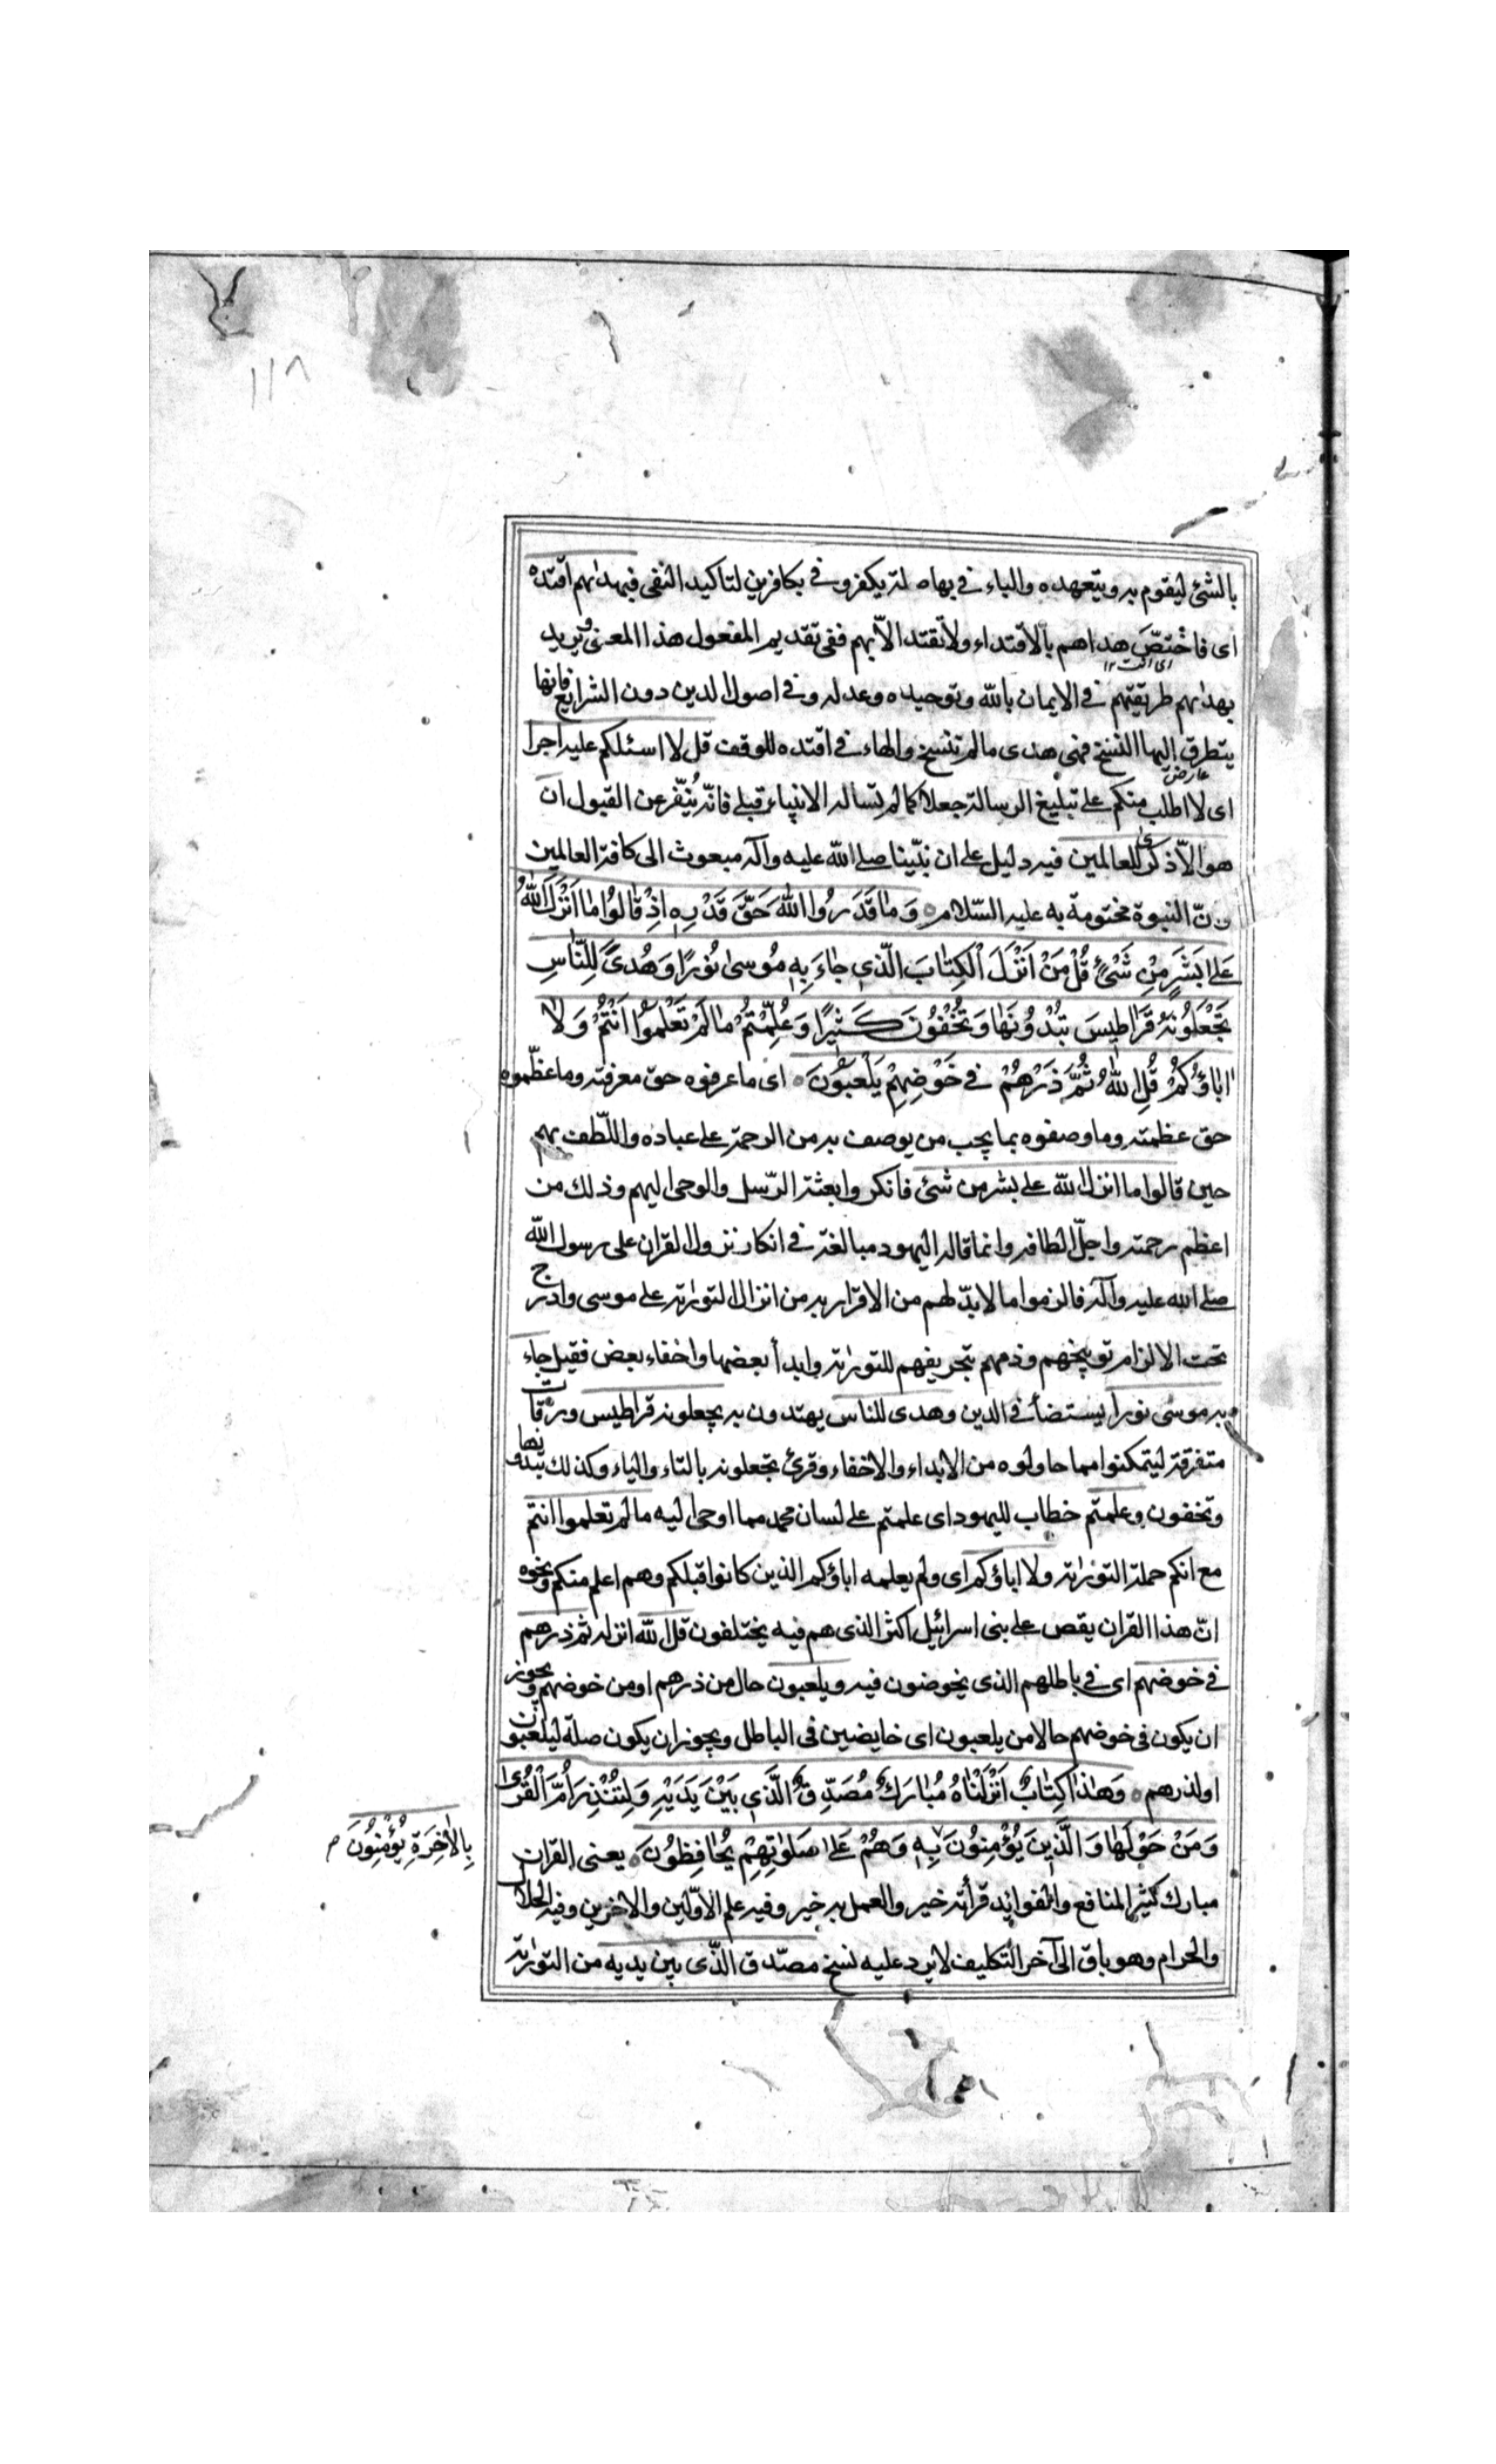 ١١٨
بالشئ ليقوم به ويتعهده والباء في بها صلة يكفرو في بكافرين لتاكيد النفى فبهداهم اقتده
اى فاختصّ هداهم بالاقتداء ولا تقتد الّا بهم ففى تقديم المفعول هذا المعنى ويريد
بهداهم طريقتهم في الايمان بالله وتوحيده وعدله وفى اصول الدين دون الشرايع فانها
يتطرق اليها النسخ فهى هدى مالم تنسخ والهاء في اقتده للوقف قل لا اسئلكم عليه اجرا
اى لا اطلب منكم على تبليغ الرسالة جعلا كما لم تساله الانبياء قبلى فانّه يُنَفّر عن القبول ان
هو الّا ذكرى للعالمين فيه دليل على ان نبّينا صلى الله عليه وآله مبعوث الى كافة العالمين
وانّ النبوة مختومة به عليه السّلام وَمَا قَدَرُوا اللهَ حَقَّ قَدْرِهِ اِذْ قَالُوا مَا اَنْزَلَ اللهُ
عَلى بَشَرٍ مِنْ شَىْءٍ قُلْ مَنْ اَنْزَلَ الْكِتَابَ الَّذى جَاءَ بِهِ مُوسىٰ نُورًا وَهُدىً لِلنَّاسِ
تَجْعَلُونَهُ قَرَاطِيسَ تُبْدُونَهَا وَتُخْفُونَ كَثِيرًا وَعُلِّمْتُمْ مَا لَمْ تَعْلَمُوا اَنْتُمْ وَلَا
اٰبَاؤُكُمْ قُلِ اللهُ ثُمَّ ذَرْهُمْ فى خَوْضِهِمْ يَلْعَبُونَ اى ما عرفوه حق معرفته وما عظّموه
حق عظمته وما وصفوه بما يجب من يوصف به من الرحمة على عباده واللّطف بهم
حين قالوا ما انزل الله على بشر من شئ فانكروا بعثة الرّسل والوحى اليهم وذلك من
اعظم رحمته واجلّ الطافه وانما قاله اليهود مبالغة في انكار نزول القران على رسول الله
صلى الله عليه وآله فالزموا ما لا بدّ لهم من الاقرار به من انزال التورٰية على موسى وادرج
تحت الالزام توبيخهم وذمهم بتحريفهم للتورٰية وابدأ بعضها واخفاء بعض فقيل جاء
به موسى نورا يستضأ في الدين وهدى للناس يهتدون به يجعلونه قراطيس ورقات
متفرقة ليتمكنوا مما حاولوه من الابداء والاخفاء وقرئ تجعلونه بالتاء والياء وكذلك تبدونها
وتخفون وعلمتم خطاب لليهود اى علمتم على لسان محمد مما اوحى اليه ما لم تعلموا انتم
مع انكم حملة التورٰية ولا اباؤكم اى ولم يعلمه اباؤكم الذين كانوا قبلكم وهم اعلم منكم ونحوه
انّ هذا القران يقص على بنى اسرائيل اكثر الذى هم فيه يختلفون قل الله انزله ثم ذرهم
في خوضهم اى في باطلهم الذى يخوضون فيه ويلعبون حال من ذرهم او من خوضهم ويجوز
ان يكون فى خوضهم حالا من يلعبون اى خايضين فى الباطل ويجوز ان يكون صلة ليلعبون
اولذرهم وَهٰذَا كِتَابٌ اَنْزَلْنَاهُ مُبَارَكٌ مُصَدِّقُ الَّذى بَيْنَ يَدَيْهِ وَلِتُنْذِرَ اُمَّ الْقُرىٰ
وَمَنْ حَوْلَهَا وَالَّذِينَ يُؤْمِنُونَ بِهِ وَهُمْ عَلى صَلٰوتِهِمْ يُحَافِظُونَ يعنى القران
بِالْاٰخِرَةِ يُؤْمِنُونَ م
مبارك كثير المنافع والفوايد قرأته خير والعمل به خير وفيه علم الاوّلين والاخرين وفيه الحلال
والحرام وهو باق الى آخر التكليف لا يرد عليه نسخ مصدّق الذّى بين يديه من التورٰية